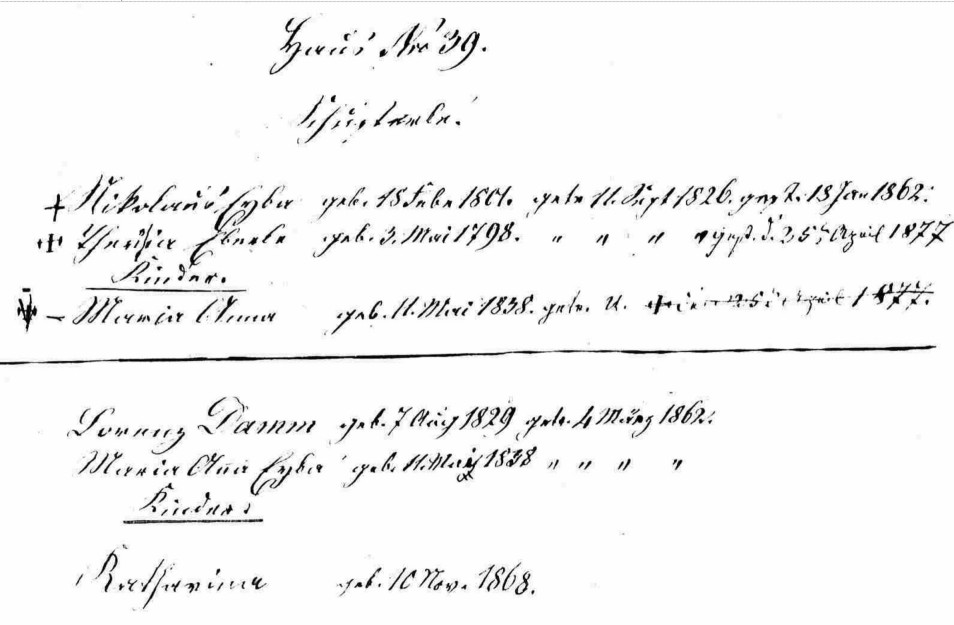 Haus Nro 39.
Schusterle.
† Nikolaus Eyba geb. 18 Febr 1801. getr. 11. Sept 1826. gest. 18 Jan 1862.
† Theresia Eberle geb. 3. Mai 1798. " " " gest. d. 25t April 1877
Kinder.
– Maria Anna geb. 11. Mai 1838. getr. u. † den 25t April 1877.
Lorenz Damm geb. 7 Aug 1829 getr. 4 März 1862.
Maria Ana Eyba geb. 11. Mai 1838 " " " "
Kinder:
Katharina geb. 10 Nov. 1868.